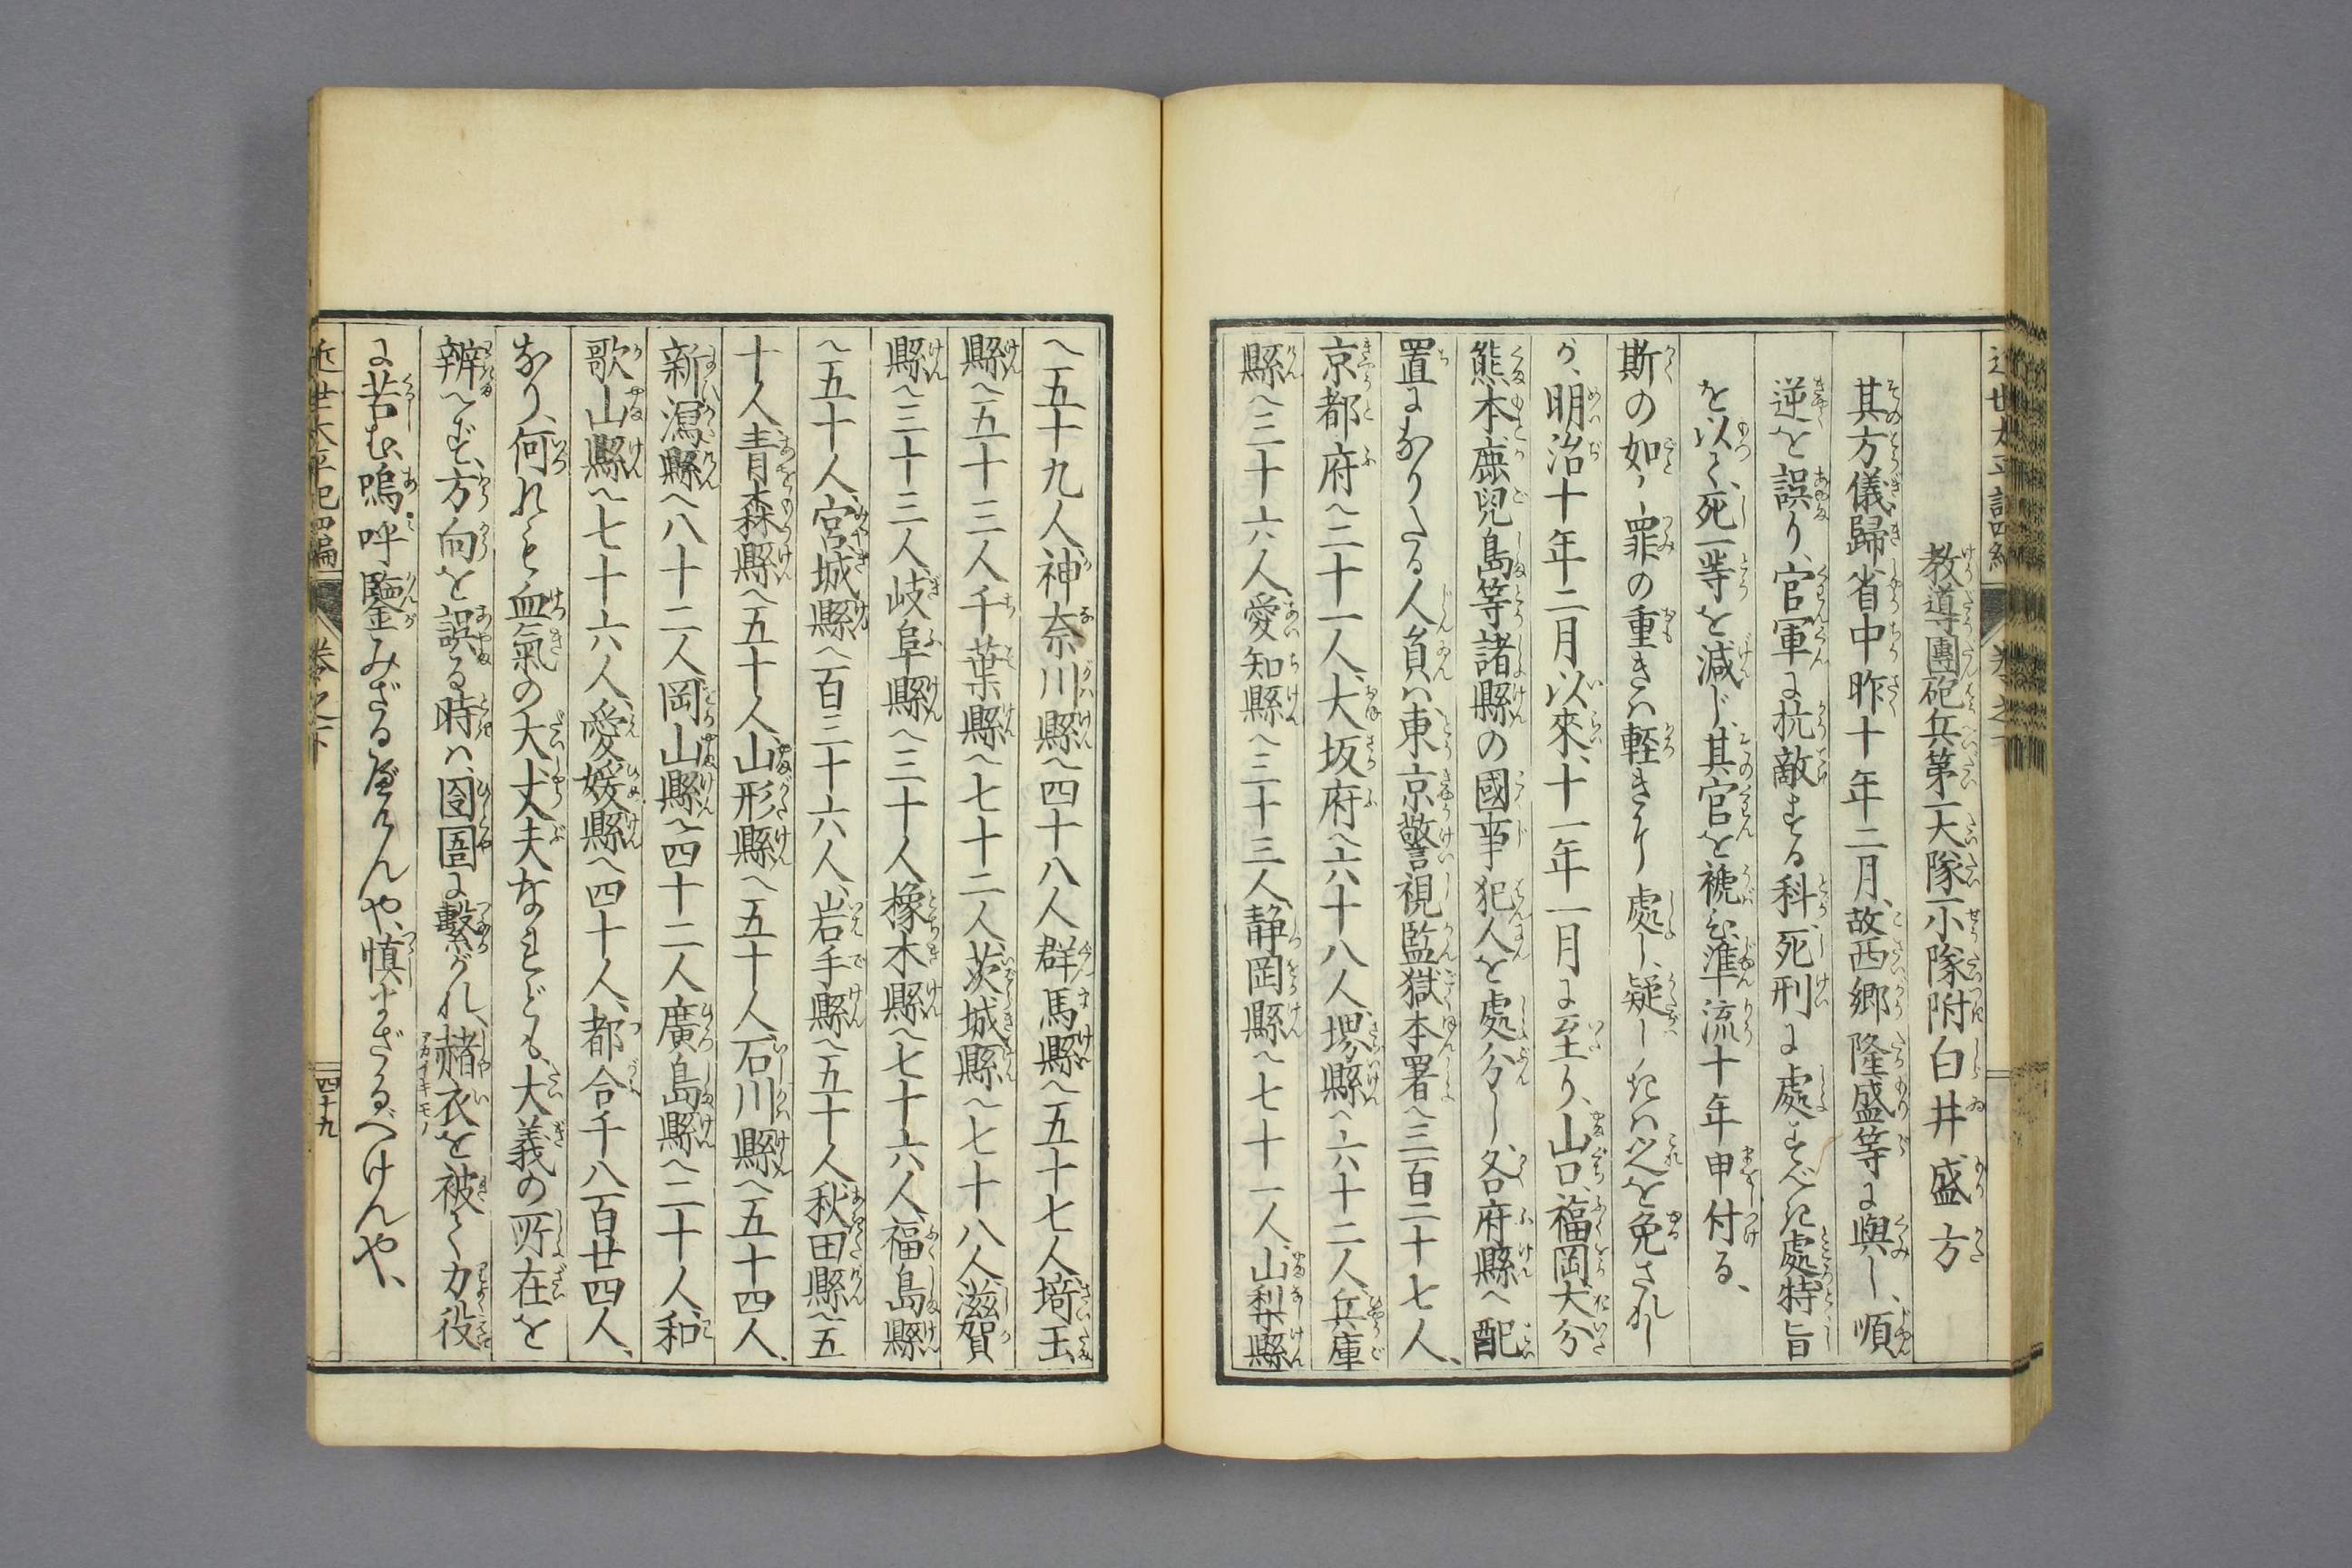 教導團砲兵第一大隊一小隊附白井盛方
其方儀歸省中昨十年二月、故西郷隆盛等に與し、順
逆を誤り、官軍に抗敵する科、死刑に處すべき處特旨
を以て、死一等を減じ、其官を褫ひ、準流十年申付る、
斯の如く罪の重きは輕きに處し、疑しきは之を免されし
が、明治十年二月以來、十一年一月に至り、山口、福岡大分
熊本鹿兒島等諸縣の國事犯人を處分し、各府縣へ配
置になりたる人員は、東京警視監獄本署へ三百二十七人、
京都府へ二十一人、大坂府へ六十八人、堺縣へ六十二人、兵庫
縣へ三十六人、愛知縣へ三十三人、静岡縣へ七十一人、山梨縣
へ五十九人、神奈川縣へ四十八人群馬縣へ五十七人、埼玉
縣へ五十三人千葉縣へ七十二人、茨城縣へ七十八人、滋賀
縣へ三十三人、岐阜縣へ三十人橡木縣へ七十六人、福島縣
へ五十人、宮城縣へ百三十六人、岩手縣へ五十人、秋田縣へ五
十人、青森縣へ五十人、山形縣へ五十人、石川縣へ五十四人、
新潟縣へ八十二人岡山縣へ四十二人廣島縣へ二十人、和
歌山縣へ七十六人、愛媛縣へ四十人、都合千八百廿四人、
なり、何れも血氣の大丈夫なれども、大義の所在を
辨へず、方向を誤る時は、囹圄に繫がれ、赭衣を被て力役
に苦む、嗚呼鑒みざるべけんや、慎まざるべけんや、
近世太平記四編　巻之下　四十九